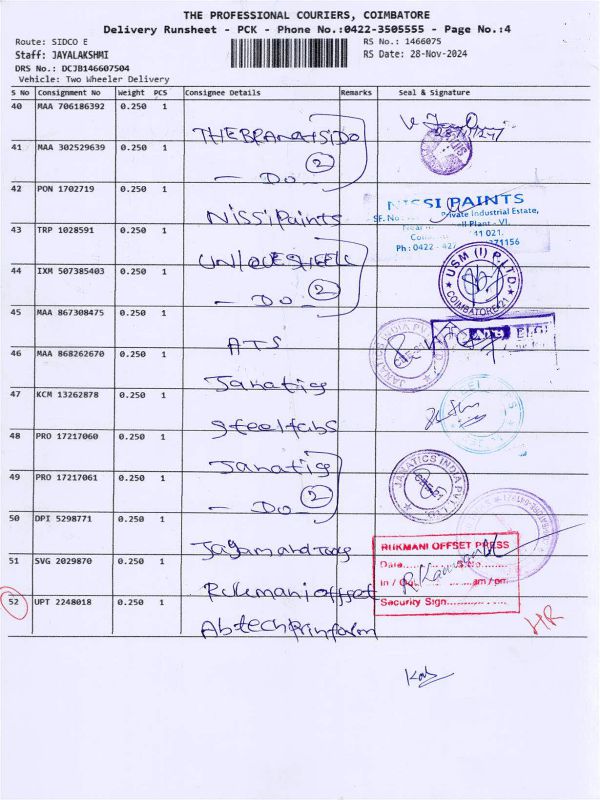 THE PROFESSIONAL COURIERS, COIMBATORE
Delivery Runsheet - PCK - Phone No.:0422-3505555 - Page No.:4
Route: SIDCO E
RS No.: 1466075
Staff: JAYALAKSHMI
RS Date: 28-Nov-2024
DRS No.: DCJB146607504
Vehicle: Two Wheeler Delivery
S No Consignment No Weight PCS Consignee Details Remarks Seal & Signature
40 MAA 706186392 0.250 1
41 MAA 302529639 0.250 1
2
- Do -
42 PON 1702719 0.250 1
Nissi Paints
NISSI PAINTS
Private Industrial Estate,
Plant - VI,
Ph : 0422 - 427 371156
43 TRP 1028591 0.250 1
44 IXM 507385403 0.250 1
- Do - 2
USM (I) P. LTD.
COIMBATORE-21
45 MAA 867308475 0.250 1
ATS
46 MAA 868262670 0.250 1
Janatics
JANATICS INDIA PVT
47 KCM 13262878 0.250 1
steelfabs
48 PRO 17217060 0.250 1
Janatics
49 PRO 17217061 0.250 1
- Do - 2
JANATICS INDIA PVT LTD.
50 DPI 5298771 0.250 1
51 SVG 2029870 0.250 1
Rukmani offset
RUKMANI OFFSET PRESS
Date
In / Out am / pm
Security Sign
52 UPT 2248018 0.250 1
HR